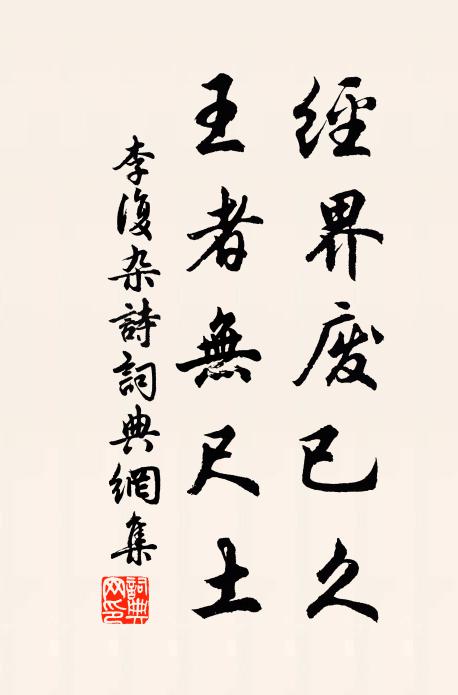 經界废已久
王者無尺土
李復杂詩詞典網集
詞典网印